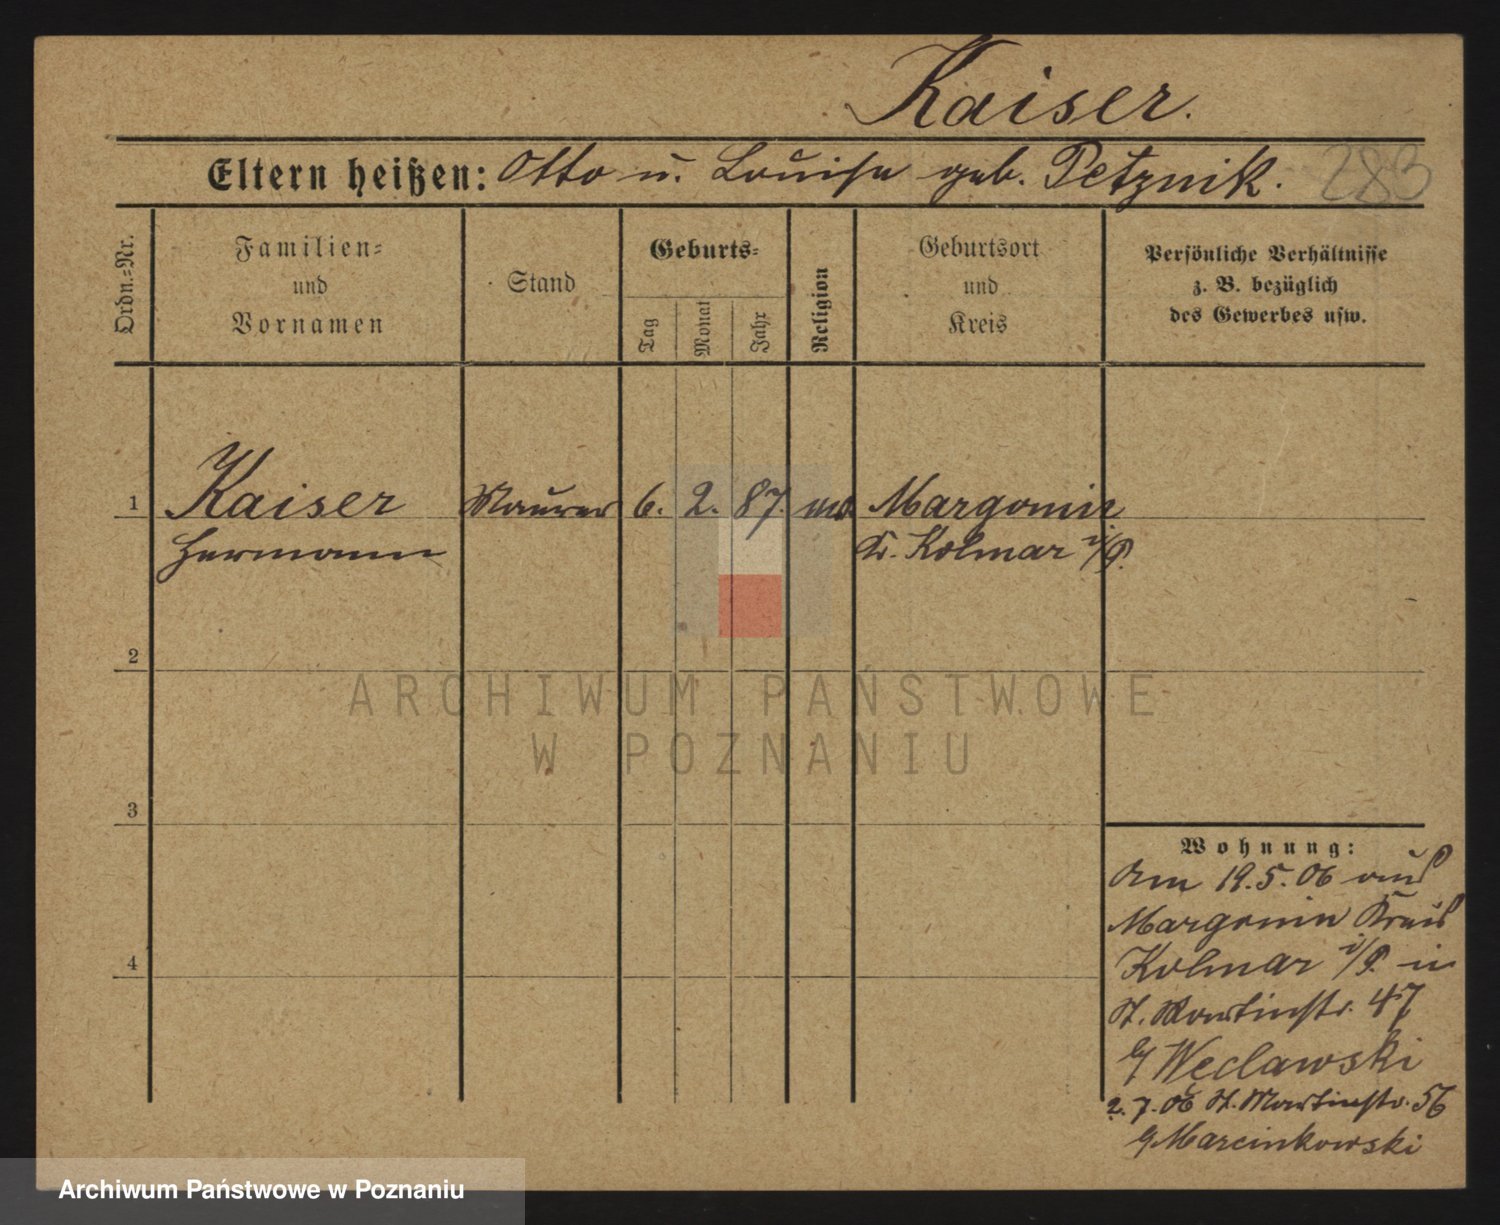 Kaiser.
Eltern heißen: Otto u. Louise geb. Petznik. 283
Ordn.=Nr.
Familien=
und
Vornamen
Stand
Geburts=
Tag
Monat
Jahr
Religion
Geburtsort
und
Kreis
Persönliche Verhältnisse
z. B. bezüglich
des Gewerbes usw.
1 Kaiser Maurer 6. 2. 87. Margonin
Hermann Kr. Kolmar i/P.
2
ARCHIWUM PAŃSTWOWE
W POZNANIU
3
Wohnung:
Am 19.5.06 aus
Margonin Kreis
Kolmar i/P. in
St. Martinstr. 47
Węclawski
2.7.06 St. Martinstr. 56
Marcinkowski
4
Archiwum Państwowe w Poznaniu